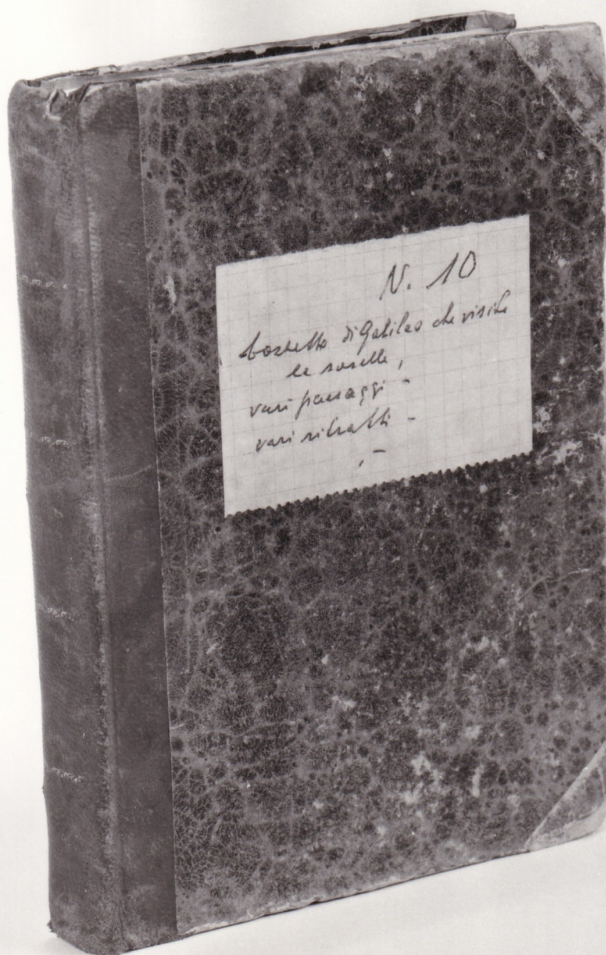 N. 10
bozzetto di Galileo che visita
le sorelle,
vari paesaggi -
vari ritratti -